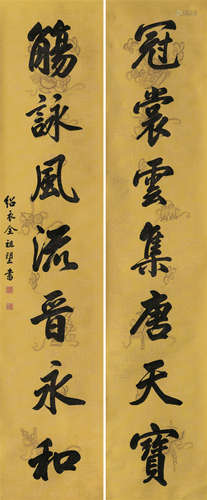 冠裳雲集唐天寶
觴詠風流晉永和
紹衣全祖望書